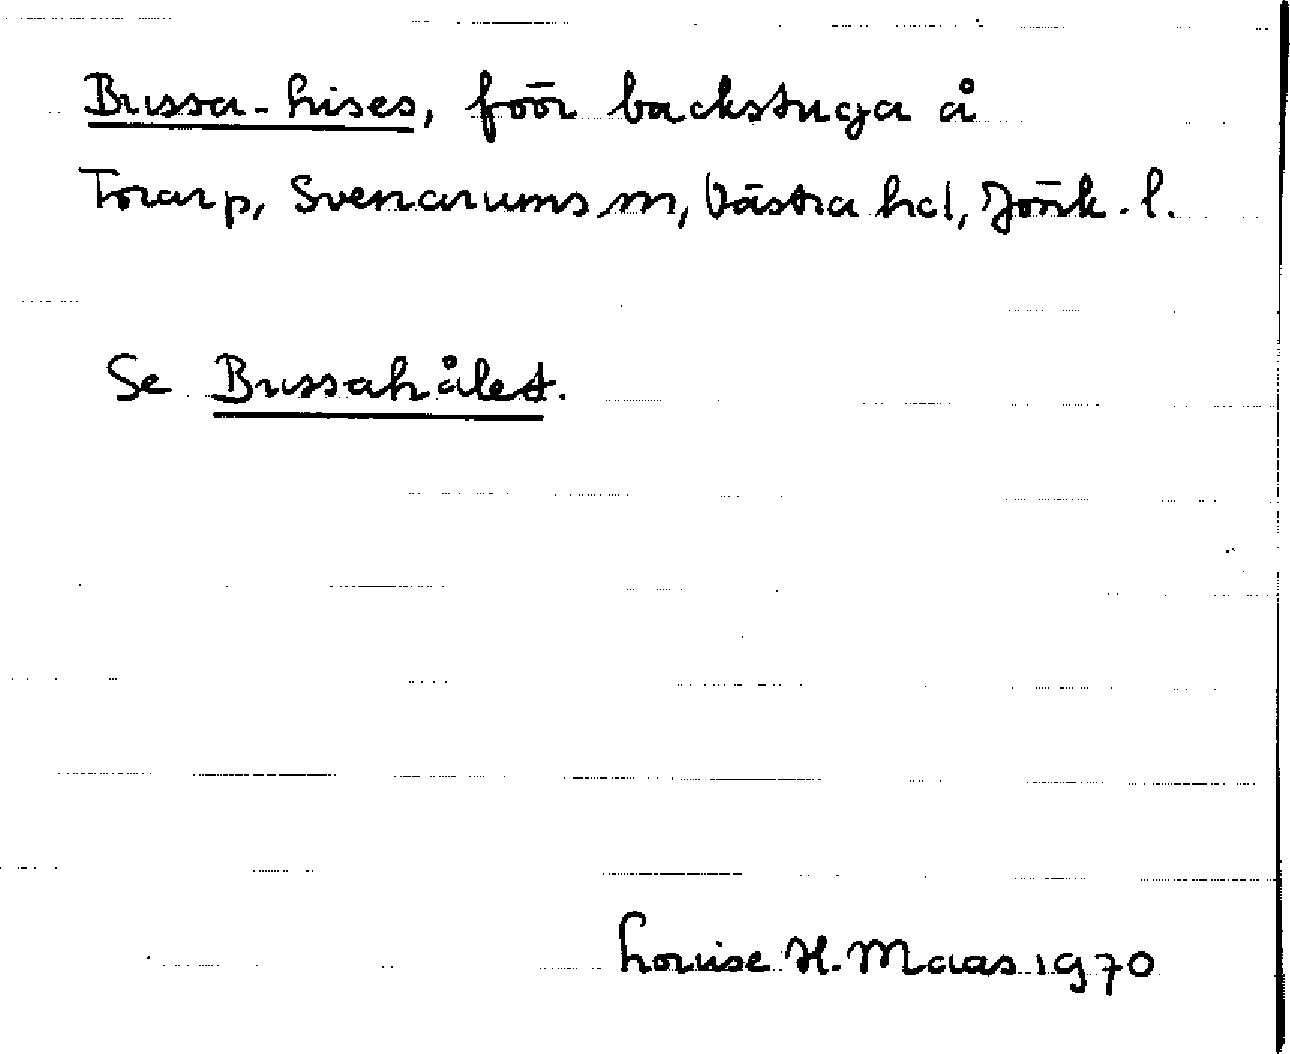 Bussa-hises, föör backstuga å
Torarp, Svenarums sn, Västra hd, Jönk. l.
Se Bussahålet.
Louise H. Maas 1970